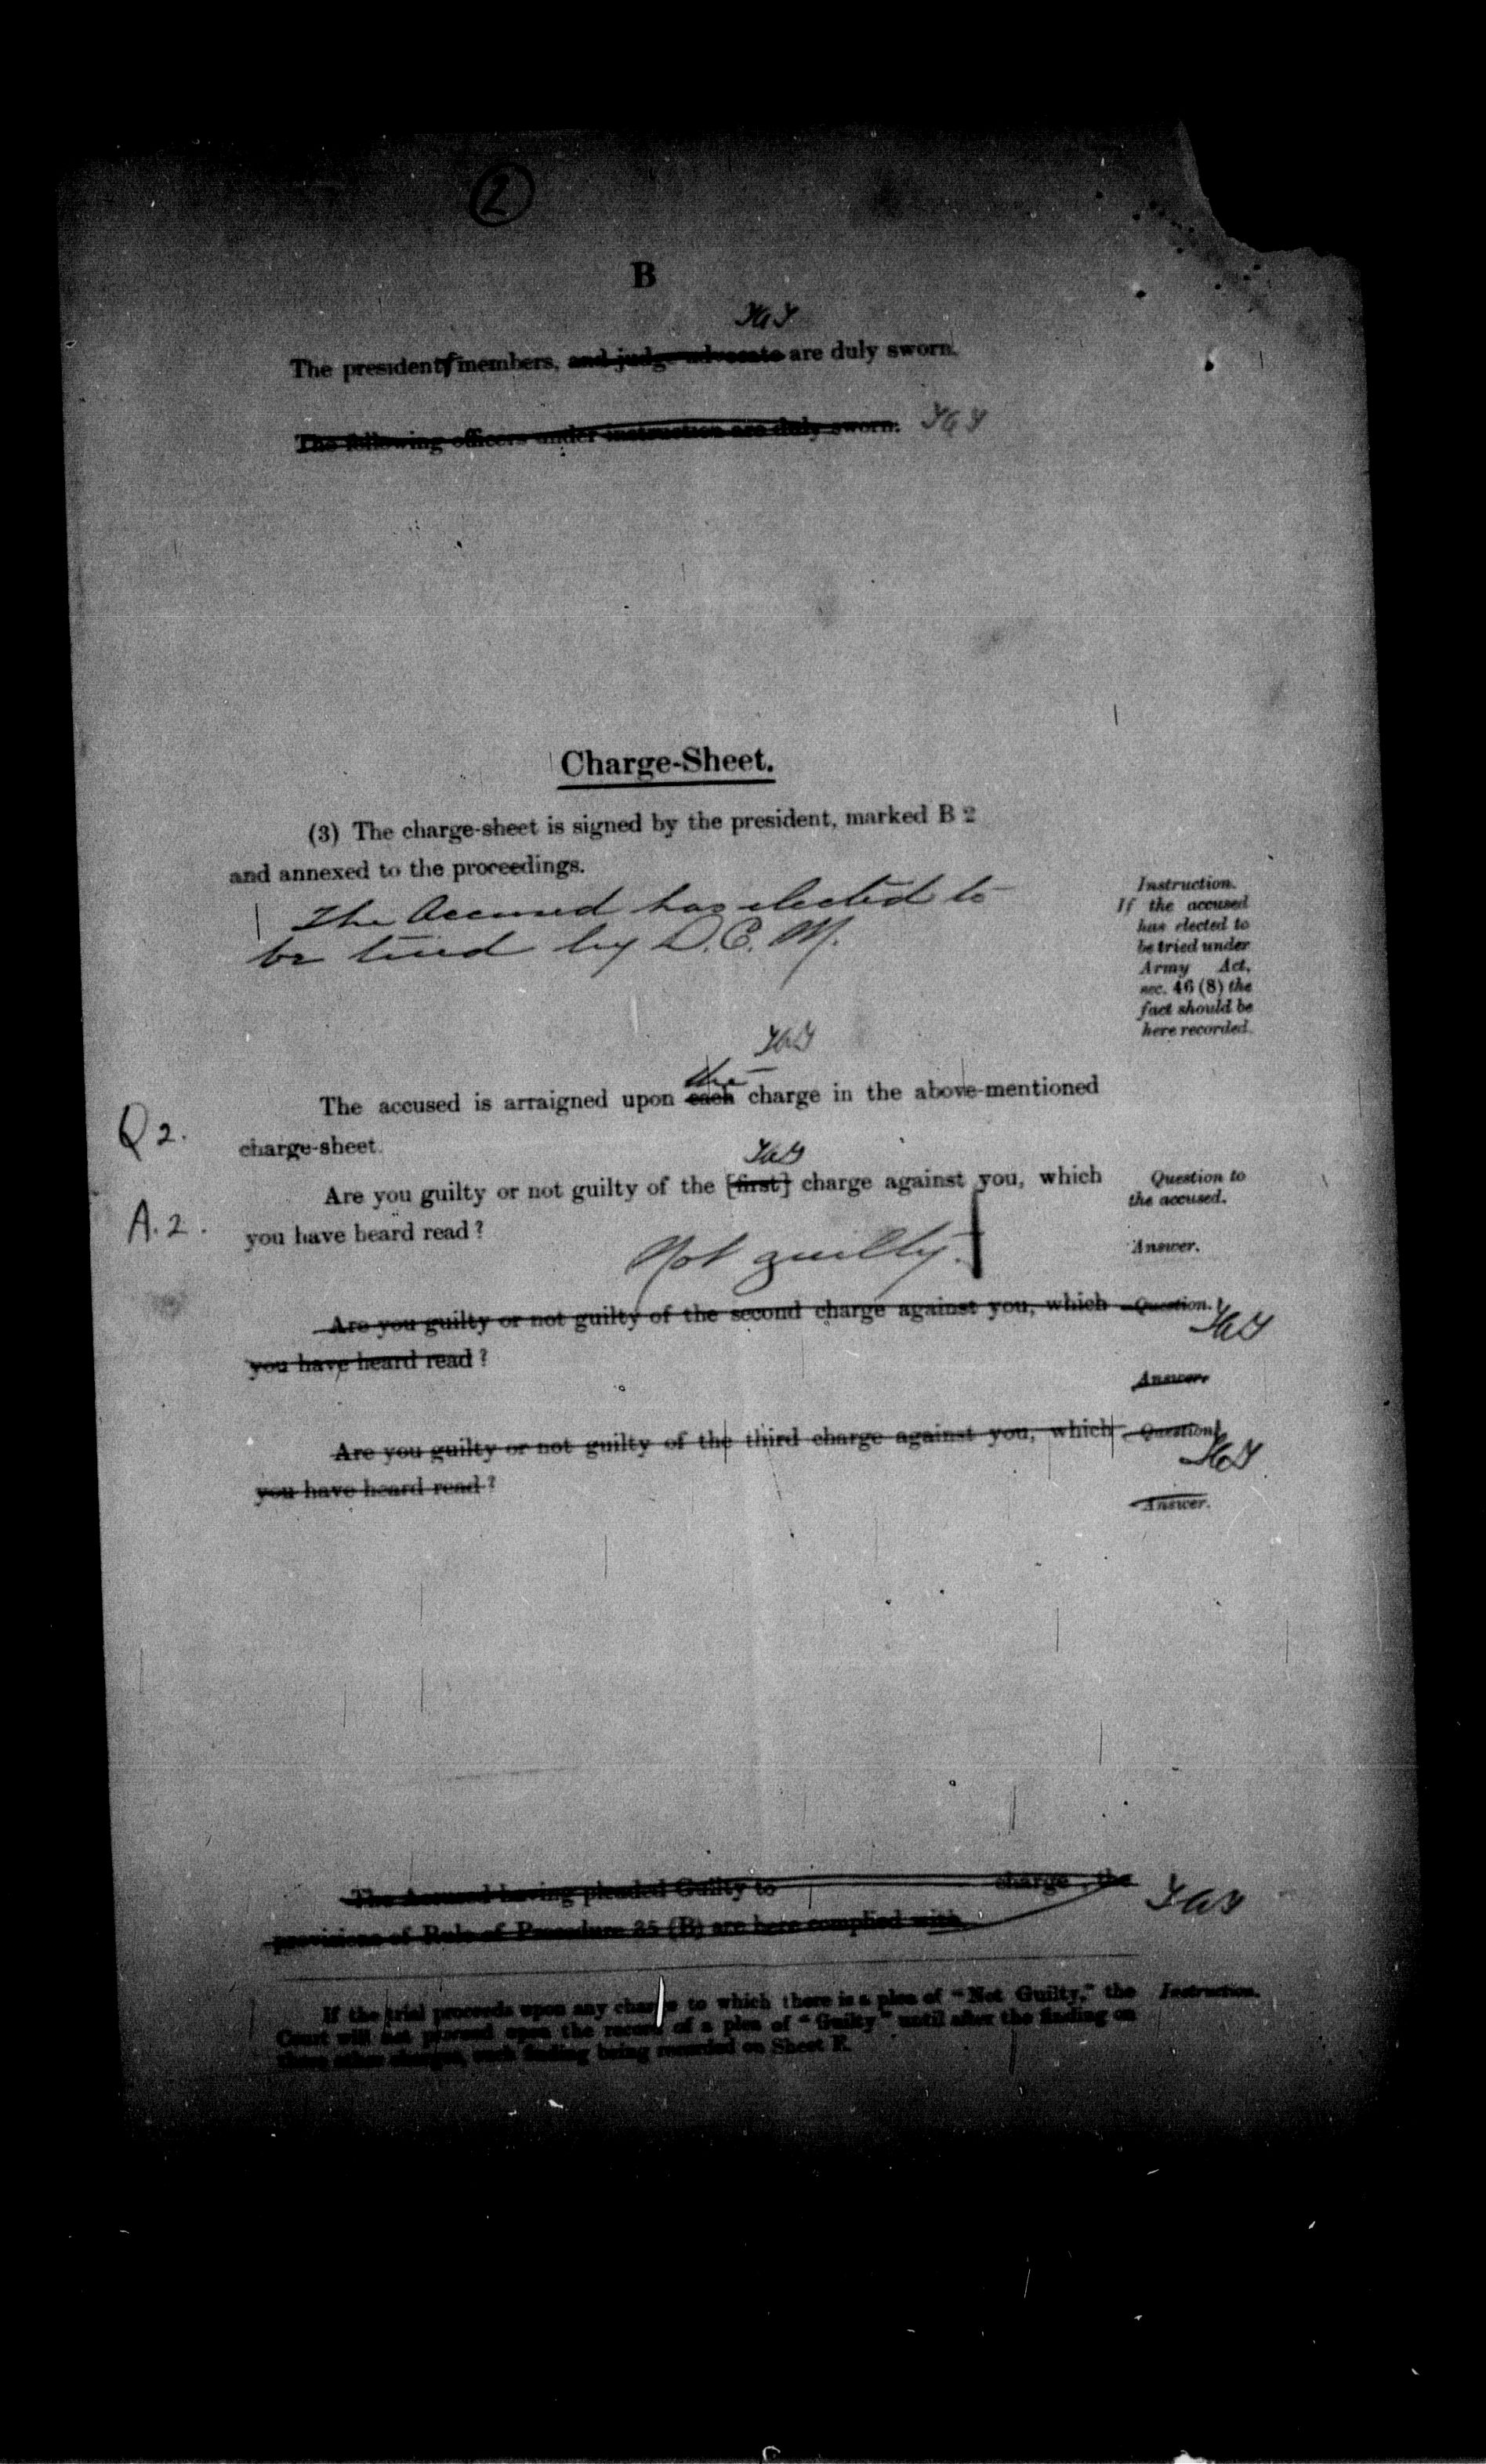 2
B
The president, members, and judge-advocate are duly sworn.
The following officers under instruction are duly sworn.
Charge-Sheet.
(3) The charge-sheet is signed by the president, marked B 2
and annexed to the proceedings.
The Accused has elected to
be tried by D.C.M.
Instruction.
If the accused
has elected to
be tried under
Army Act,
sec. 46 (8) the
fact should be
here recorded.
the
The accused is arraigned upon each charge in the above-mentioned
Q 2.
charge-sheet.
Are you guilty or not guilty of the [first] charge against you, which
Question to
the accused.
A. 2.
you have heard read?
Not guilty.
Answer.
Are you guilty or not guilty of the second charge against you, which
Question.
you have heard read?
Answer.
Are you guilty or not guilty of the third charge against you, which
Question.
you have heard read?
Answer.
The Accused having pleaded Guilty to charge , the
provisions of Rule of Procedure 35 (B) are here complied with.
If the trial proceeds upon any charge to which there is a plea of "Not Guilty," the
Instruction.
Court will not proceed upon the record of a plea of "Guilty" until after the finding on
those other charges, such finding being recorded on Sheet F.